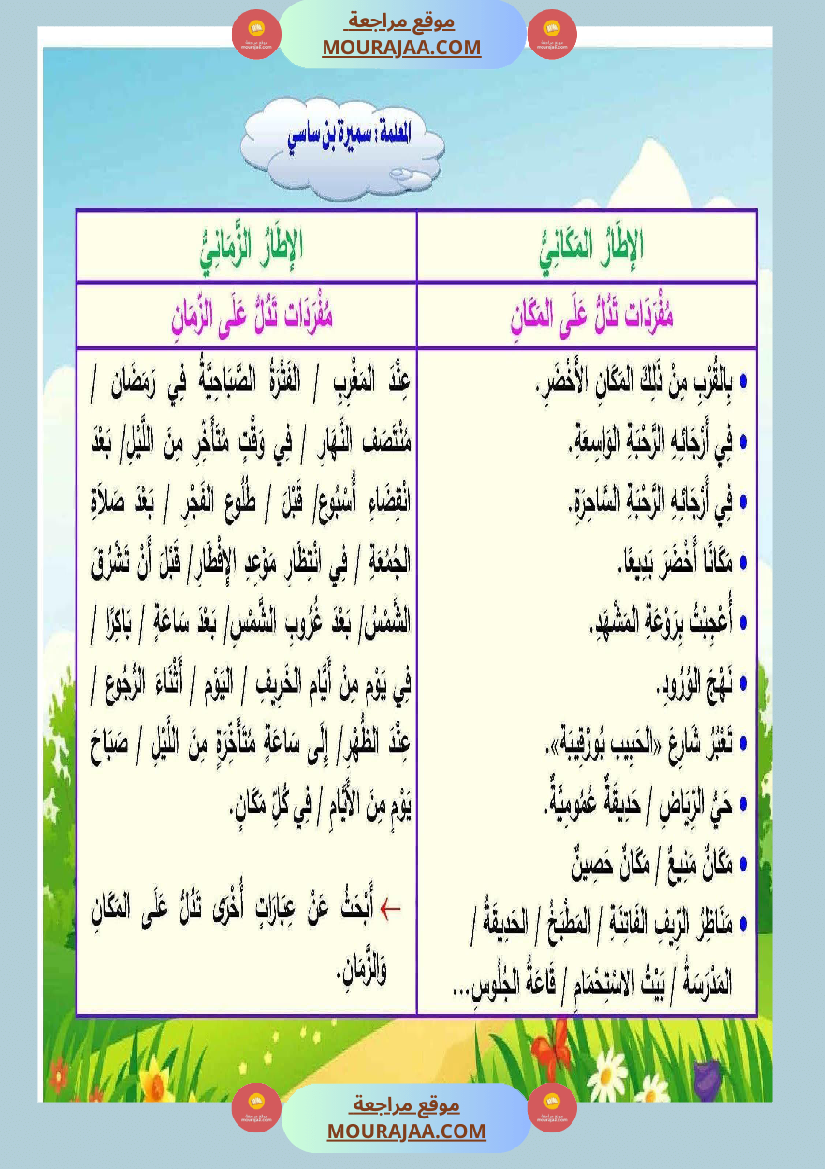 موقع مراجعة
MOURAJAA.COM
المعلمة : سميرة بن ساسي
الإِطَارُ المَكَانِيُّ
مُفْرَدَات تَدُلُّ عَلَى المَكَانِ
• بِالقُرْبِ مِنْ ذَلِكَ المَكَانِ الأَخْضَرِ.
• فِي أَرْجَائِهِ الرَّحْبَةِ الوَاسِعَةِ.
• فِي أَرْجَائِهِ الرَّحْبَةِ السَّاحِرَةِ.
• مَكَانًا أَخْضَرَ بَدِيعًا.
• أُعْجِبْتُ بِرَوْعَةِ المَشْهَدِ.
• نَهْجَ الوُرُودِ.
• تَعْبُرُ شَارِعَ «الحَبِيبِ بُورْقِيبَة».
• حَيُّ الرِّيَاضِ / حَدِيقَةٌ عُمُومِيَّةٌ.
• مَكَانٌ مَنِيعٌ / مَكَانٌ حَصِينٌ
• مَنَاظِرُ الرِّيفِ الفَاتِنَةِ / المَطْبَخُ / الحَدِيقَةُ /
المَدْرَسَةُ / بَيْتُ الاسْتِحْمَامِ / قَاعَةُ الجُلُوسِ...
الإِطَارُ الزَّمَانِيُّ
مُفْرَدَات تَدُلُّ عَلَى الزَّمَانِ
عِنْدَ المَغْرِبِ / الفَتْرَةُ الصَّبَاحِيَّةُ فِي رَمَضَان /
مُنْتَصَف النَّهَارِ / فِي وَقْتٍ مُتَأَخِّرِ مِنَ اللَّيْلِ/ بَعْدَ
انْقِضَاءِ أُسْبُوع/ قَبْلَ / طُلُوع الفَجْرِ / بَعْدَ صَلاَةِ
الجُمُعَةِ / فِي انْتِظَارِ مَوْعِدِ الإِفْطَارِ/ قَبْلَ أَنْ تَشْرُقَ
الشَّمْسُ/ بَعْدَ غُرُوبِ الشَّمْسِ/ بَعْدَ سَاعَةٍ / بَاكِرًا /
فِي يَوْمٍ مِنْ أَيَّام الخَرِيفِ / اليَوْم / أَثْنَاءَ الرُّجُوع /
عِنْدَ الظُّهْرِ/ إِلَى سَاعَةٍ مُتَأَخِّرَةٍ مِنَ اللَّيْلِ / صَبَاحَ
يَوْمٍ مِنَ الأَيَّامِ / فِي كُلِّ مَكَانٍ.
← أَبْحَثُ عَنْ عِبَارَاتٍ أُخْرَى تَدُلُّ عَلَى المَكَانِ
وَالزَّمَانِ.
موقع مراجعة
MOURAJAA.COM